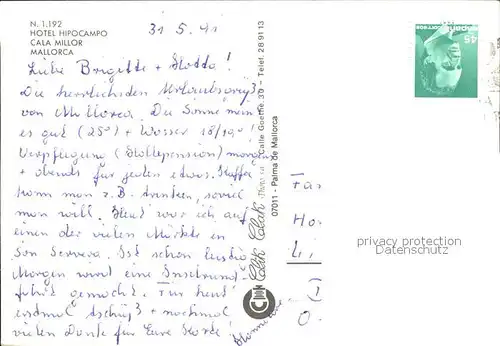 N. 1.192
HOTEL HIPOCAMPO
CALA MILLOR
MALLORCA
31.5.91
Liebe Brigitte +
Die herrlichsten Urlaubsgrüße
von Mallorca. Die Sonne mein
es gut (25°) + Wasser 18/19°!
Verpflegung (Halbpension) morgens
+ abends für jeden etwas. Kaffee
kann man z.B. trinken, soviel
man will. Heut war ich auf
einen der vielen Märkte in
Son Servera. Ist schon lustig
Morgen wird eine Inselrund-
fahrt gemacht. Für heut
erstmal tschüß + nochmal
vielen Dank für Eure Karte!
Hannelore
Clik Clak
Calle Goethe, 30 - Telef. 28 91 13
07011 - Palma de Mallorca
45
Fa
Ho
Li
O
privacy protection
Datenschutz